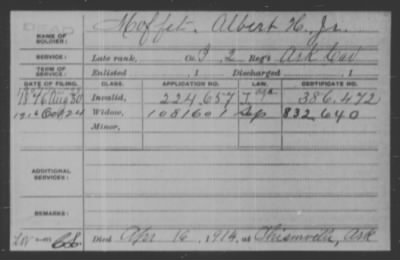 NAME OF SOLDIER: Moffet, Albert H, Jr.
SERVICE: Late rank, Co. I, 2 Reg't Ark Cav
TERM OF SERVICE: Enlisted , 1 Discharged , 1
DATE OF FILING. CLASS. APPLICATION NO. LAW. CERTIFICATE NO.
1876 Aug 30 Invalid, 224.657 386.472
1916 Oct 24 Widow, 1081601 Sep 832.640
Minor,
ADDITIONAL SERVICES:
REMARKS:
Died Apr 16, 1914, at Chismville, Ark